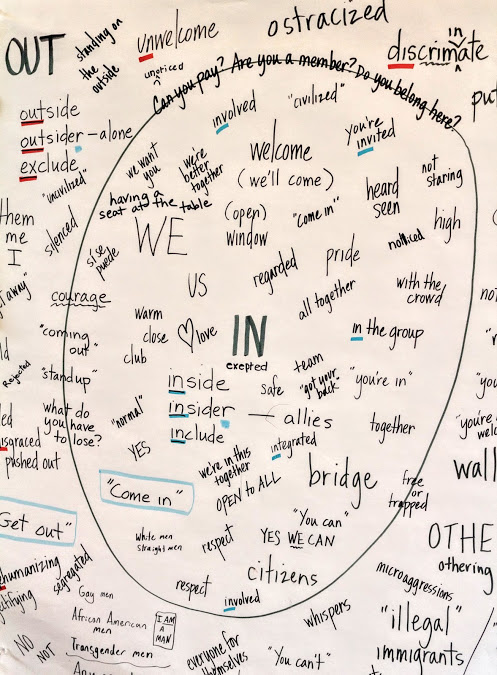 OUT
standing on
the
outside
unwelcome
ostracized
in
discrimate
unoticed
Can you pay? Are you a member? Do you belong here?
outside
outsider - alone
exclude
"uncivilized"
involved
"civilized"
you're
invited
we want
you
we're
better
together
welcome
(we'll come)
heard
seen
not
staring
having a
seat at the table
(open)
window
"come in"
high
them
me
I
silenced
si se
puede
WE
pride
noticed
regarded
US
all together
with the
crowd
courage
warm
close
love
club
IN
exepted
in the group
"coming
out"
Rejected
"standup"
inside
insider — allies
include
safe
team
"got your
back"
"you're in"
together
what do
you have
to lose?
"normal"
YES
integrated
pushed out
we're in this
together
OPEN TO ALL
bridge
free
or
trapped
"Come in"
Get out"
White men
straight men
respect
"You can"
YES WE CAN
citizens
OTHE
othering
microaggressions
segregated
respect
involved
whispers
"illegal"
immigrants
Gay men
African American
men
I AM
A
MAN
Transgender men
NO
NOT
everyone for
themselves
"You can't"